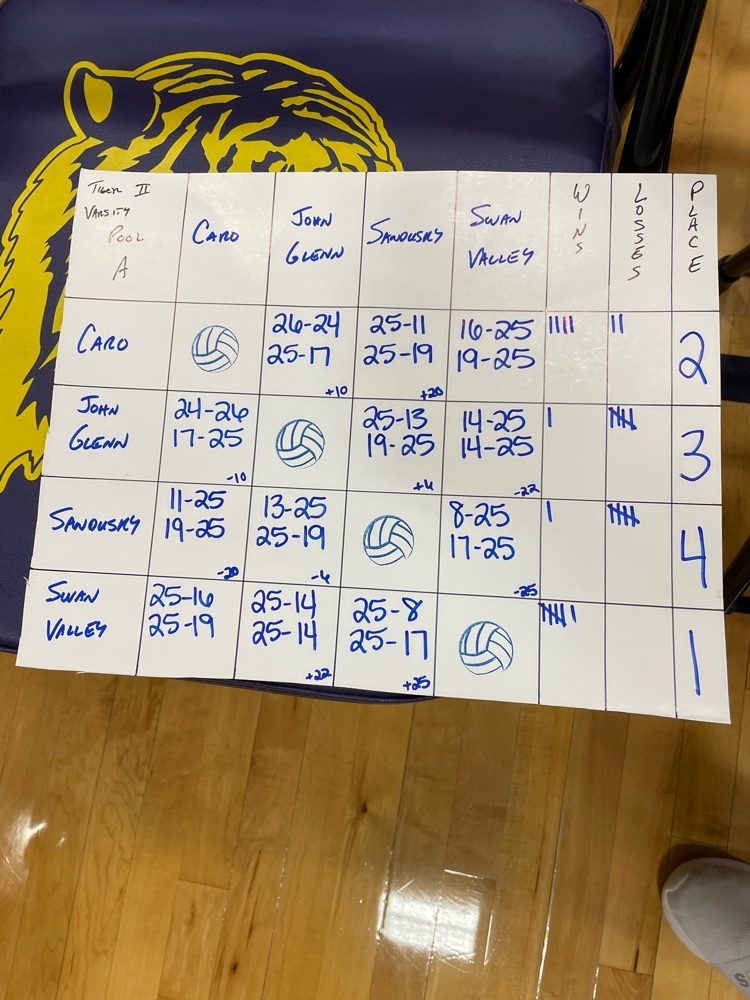 TIGER II
VARSITY
POOL
A
CARO
JOHN
GLENN
SANDUSKY
SWAN
VALLEY
WINS
LOSSES
PLACE
CARO
26-24
25-17
+10
25-11
25-19
+20
16-25
19-25
IIII
II
2
JOHN
GLENN
24-26
17-25
-10
25-13
19-25
+6
14-25
14-25
-22
I
IIIII
3
SANDUSKY
11-25
19-25
-20
13-25
25-19
-6
8-25
17-25
-25
I
IIIII
4
SWAN
VALLEY
25-16
25-19
25-14
25-14
+22
25-8
25-17
+25
IIIII I
1